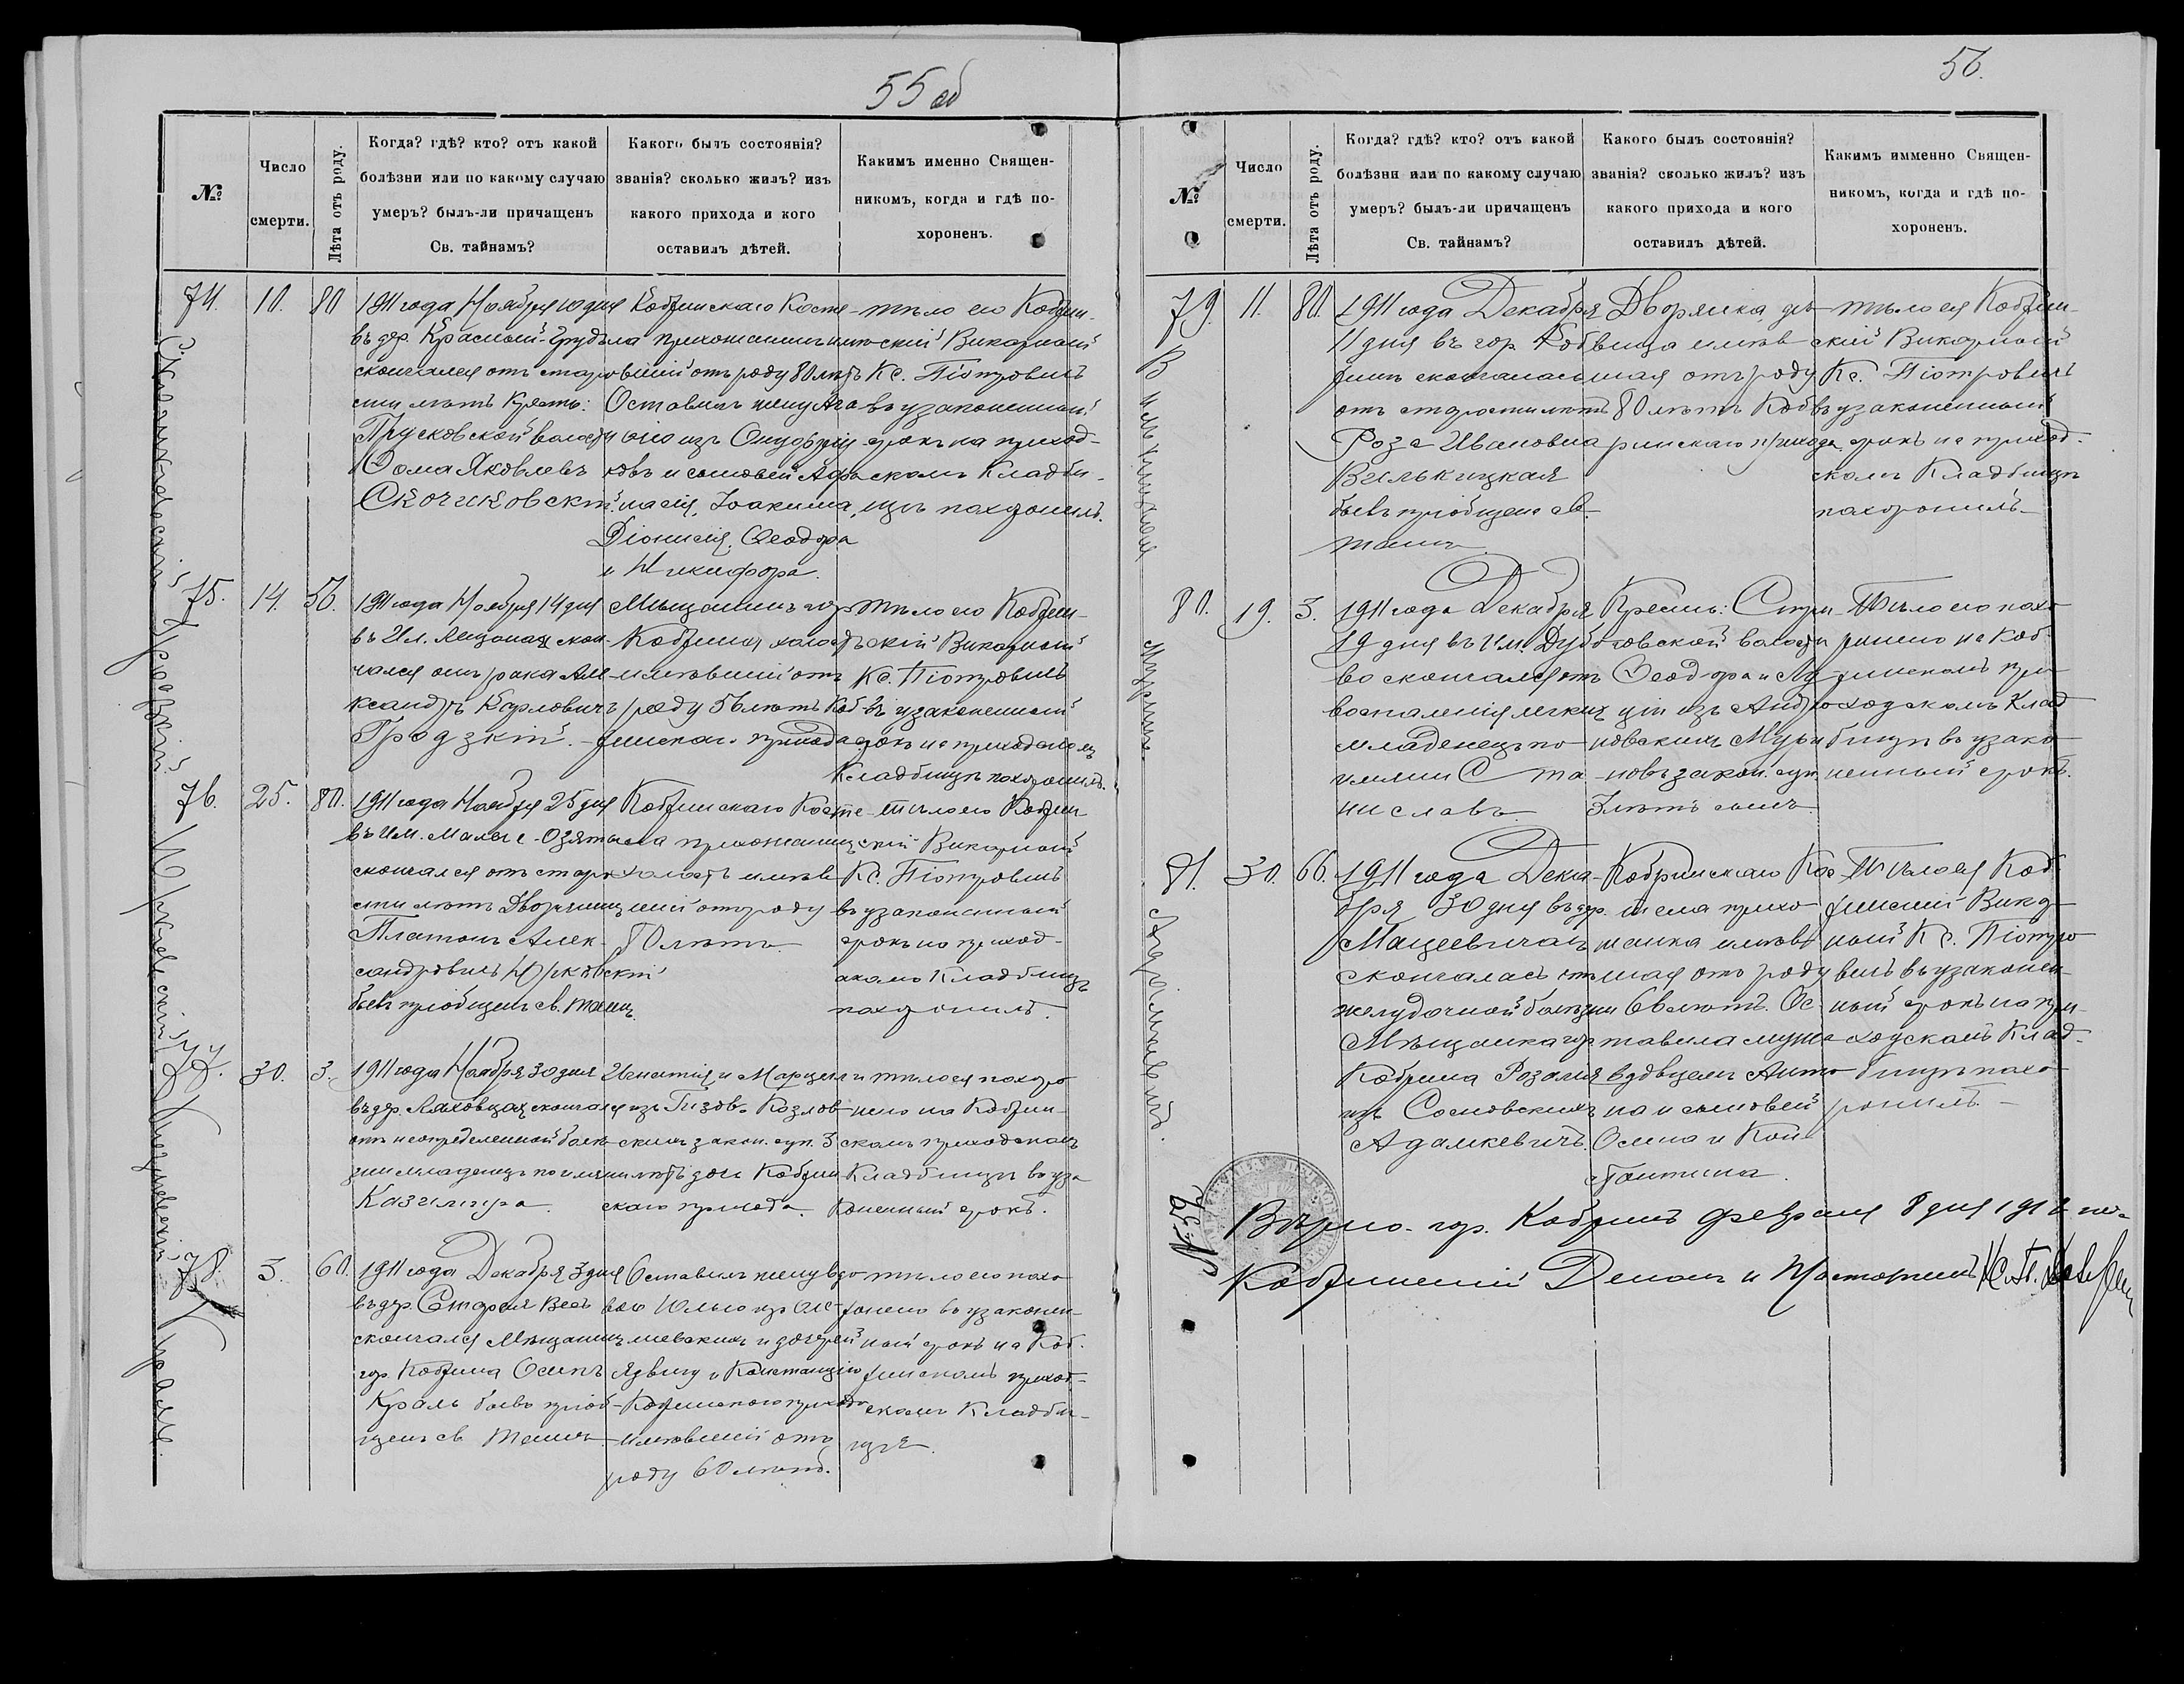 55 об
№
Число смерти.
Лѣта отъ роду.
Когда? гдѣ? кто? отъ какой
болѣзни или по какому случаю
умеръ? былъ-ли причащенъ
Св. тайнамъ?
Какого былъ состоянія?
званія? сколько жилъ? изъ
какого прихода и кого
оставилъ дѣтей.
Какимъ именно Священ-
никомъ, когда и гдѣ по-
хороненъ.
Скочиковскій
74.
10.
80
1911 года Ноября 10 дня
въ дер. Красный-Груд
скончался отъ старо
сти лѣтъ Крест:
Прусковской волости
Ѳома Яковлевъ
Скочиковскій
Кобринскаго Косте-
ла прихожанинъ имѣ
вшій отъ роду 80 лѣтъ
Оставилъ жену Ага
ѳію изъ
ковъ и сыновей
Іоакима,
Діонисія, Ѳеодора
и Никифора.
тѣло его Кобрин-
скій Викарный
Кс. Піотровичъ
въ узаконенный
срокъ на приход-
скомъ Кладби-
щѣ похоронилъ.
Гродзкій
75.
14.
56.
1911 года Ноября 14 дня
въ Им. скон-
чался отъ рака Але
ксандръ Карловичъ
Гродзкій.
Мѣщанинъ гор
Кобрина холостъ
имѣвшій отъ
роду 56 лѣтъ Коб-
ринскаго прихода
тѣло его Кобрин-
скій Викарный
Кс. Піотровичъ
въ узаконенный
срокъ на приходскомъ
Кладбищѣ похоронилъ.
76.
25.
80.
1911 года Ноября 25 дня
въ Им. Малыя-Озяты
скончался отъ старо
сти лѣтъ Дворянинъ
Платонъ Алек-
сандровичъ
бывъ пріобщенъ св. таинъ
Кобринскаго Косте-
ла прихожанинъ
холостъ имѣв
шій отъ роду
80 лѣтъ
тѣло его Кобрин
скій Викарный
Кс. Піотровичъ
въ узаконенный
срокъ на приход-
скомъ Кладбищѣ
похоронилъ.
77.
30.
3.
1911 года Ноября 30 дня
въ дер. Ляховцахъ скончался
отъ неопредѣленной болѣ-
зни младенецъ по имени
Казиміра.
Игнатія и Марцели
изъ Козлов-
скихъ закон. суп. 3
лѣтъ дочь Кобрин
скаго прихода.
тѣло ея похоро
нено на Кобрин-
скомъ приходскомъ
Кладбищѣ въ уза
коненный срокъ.
Краль.
78.
3.
60.
1911 года Декабря 3 дня
въ дер. Старая Весь
скончался Мѣщанинъ
гор. Кобрина Осипъ
Краль бывъ пріоб-
щенъ св таинъ
Оставилъ жену вдо
вою Юлію изъ
и дочерей
Ядвигу и Констанцію
Кобринскаго прихода
имѣвшій отъ
роду 60 лѣтъ.
тѣло его похо
ронено въ узаконен-
ный срокъ на Коб-
ринскомъ приход-
скомъ Кладби-
щѣ.
56.
№
Число смерти.
Лѣта отъ роду.
Когда? гдѣ? кто? отъ какой
болѣзни или по какому случаю
умеръ? былъ-ли причащенъ
Св. тайнамъ?
Какого былъ состоянія?
званія? сколько жилъ? изъ
какого прихода и кого
оставилъ дѣтей.
Какимъ имменно Священ-
никомъ, когда и гдѣ по-
хороненъ.
Вилькицкая
79.
11.
80.
1911 года Декабря
11 дня въ гор Коб
ринѣ скончалась
отъ старости лѣтъ
Роза Ивановна
Вилькицкая
бывъ пріобщена св.
таинъ
Дворянка, дѣ-
вица имѣв
шая отъ роду
80 лѣтъ Коб
ринскаго прихода
тѣло ея Кобрин-
скій Викарный
Кс. Піотровичъ
въ узаконенный
срокъ на приход-
скомъ Кладбищѣ
похоронилъ
80.
19.
3.
1911 года Декабря
19 дня въ Им. Дубо
во скончался отъ
воспаленія легкихъ
младенецъ по
имени Ста
ниславъ
Крест:
волости
Ѳеодора и
изъ Андро
новскихъ
закон. суп.
3 лѣтъ сынъ
тѣло его похо
ронено на Коб-
ринскомъ при
ходскомъ Клад
бищѣ въ узако
ненный срокъ.
Адамкевичъ.
81.
30.
66.
1911 года Дека-
бря 30 дня въ дер.
Мацеевичахъ
скончалась отъ
желудочной болѣзни
Мѣщанка гор
Кобрина Розалія
изъ Сосновскихъ
Адамкевичъ.
Кобринскаго Кос
тела прихо
жанка имѣв
шая отъ роду
66 лѣтъ. Ос-
тавила мужа
вдовцемъ Анто
на и сыновей
Осипа и Кон
стантина.
тѣло ея Коб
ринскій Вика
ный Кс. Піотро
вичъ въ узаконен-
ный срокъ на при-
ходскомъ Клад-
бищѣ похо
ронилъ.
№ 52
Вѣрно. гор. Кобринъ Февраля 8 дня 1912 го-
Кобринскій Деканъ и Настоятель